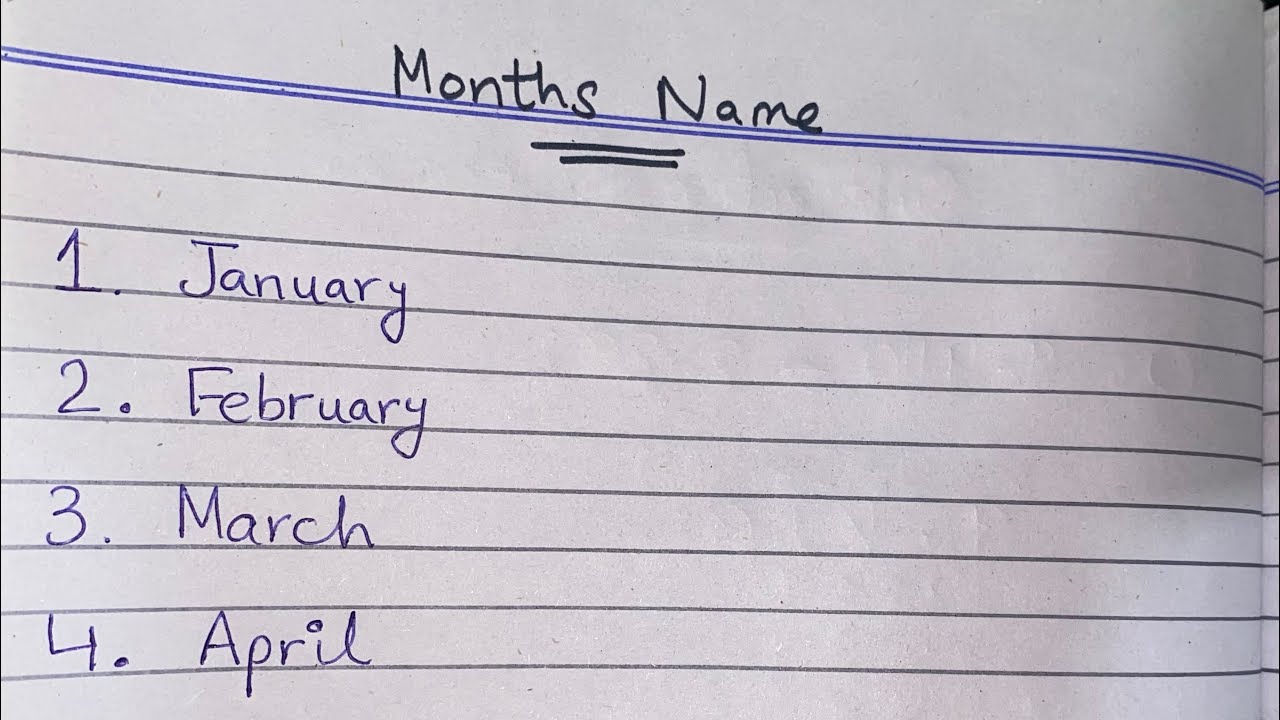 Months Name
1. January
2. February
3. March
4. April